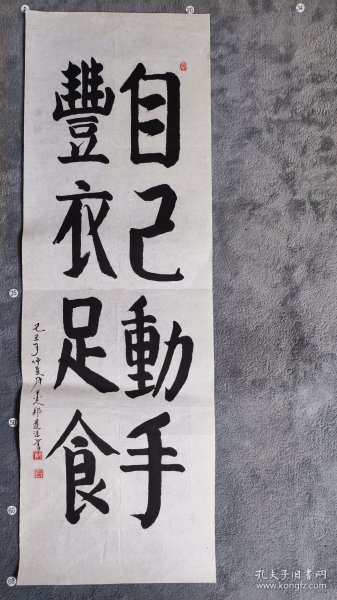 自己動手
豐衣足食
孔夫子旧书网
www.kongfz.com